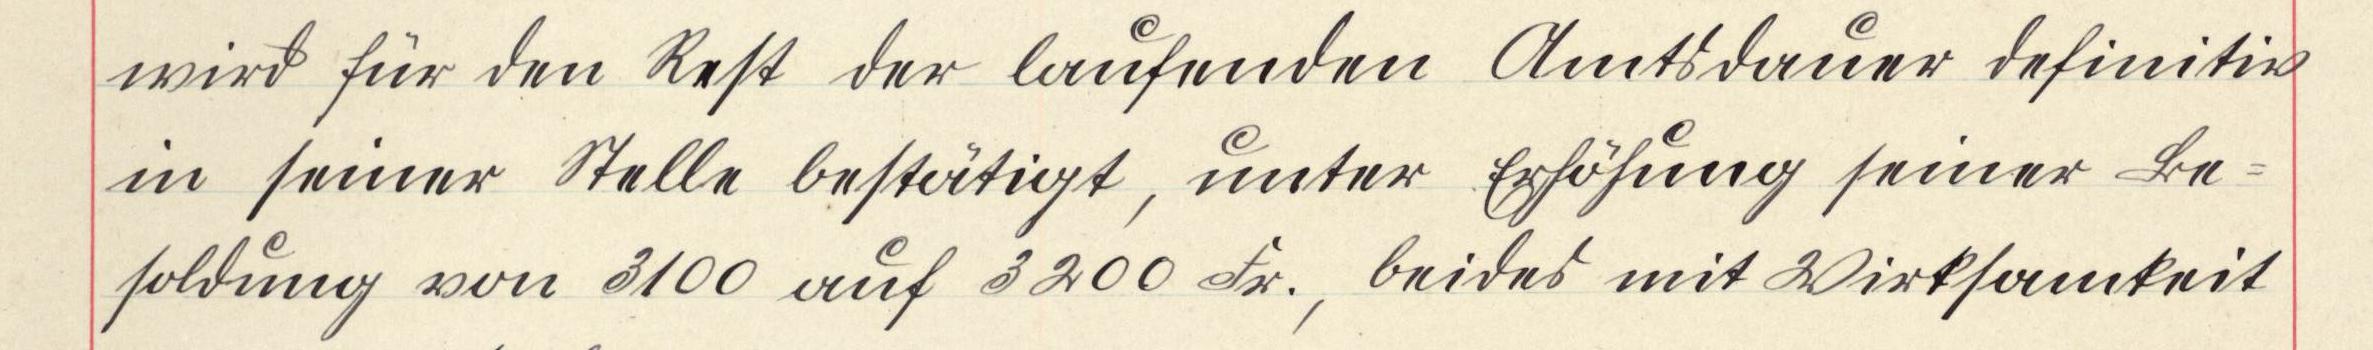 wird für den Rest der laufenden Amtsdauer definitiv
in seiner Stelle bestätigt, unter Erhöhung seiner Be=
soldung von 3100 auf 3200 Fr., beides mit Wirksamkeit